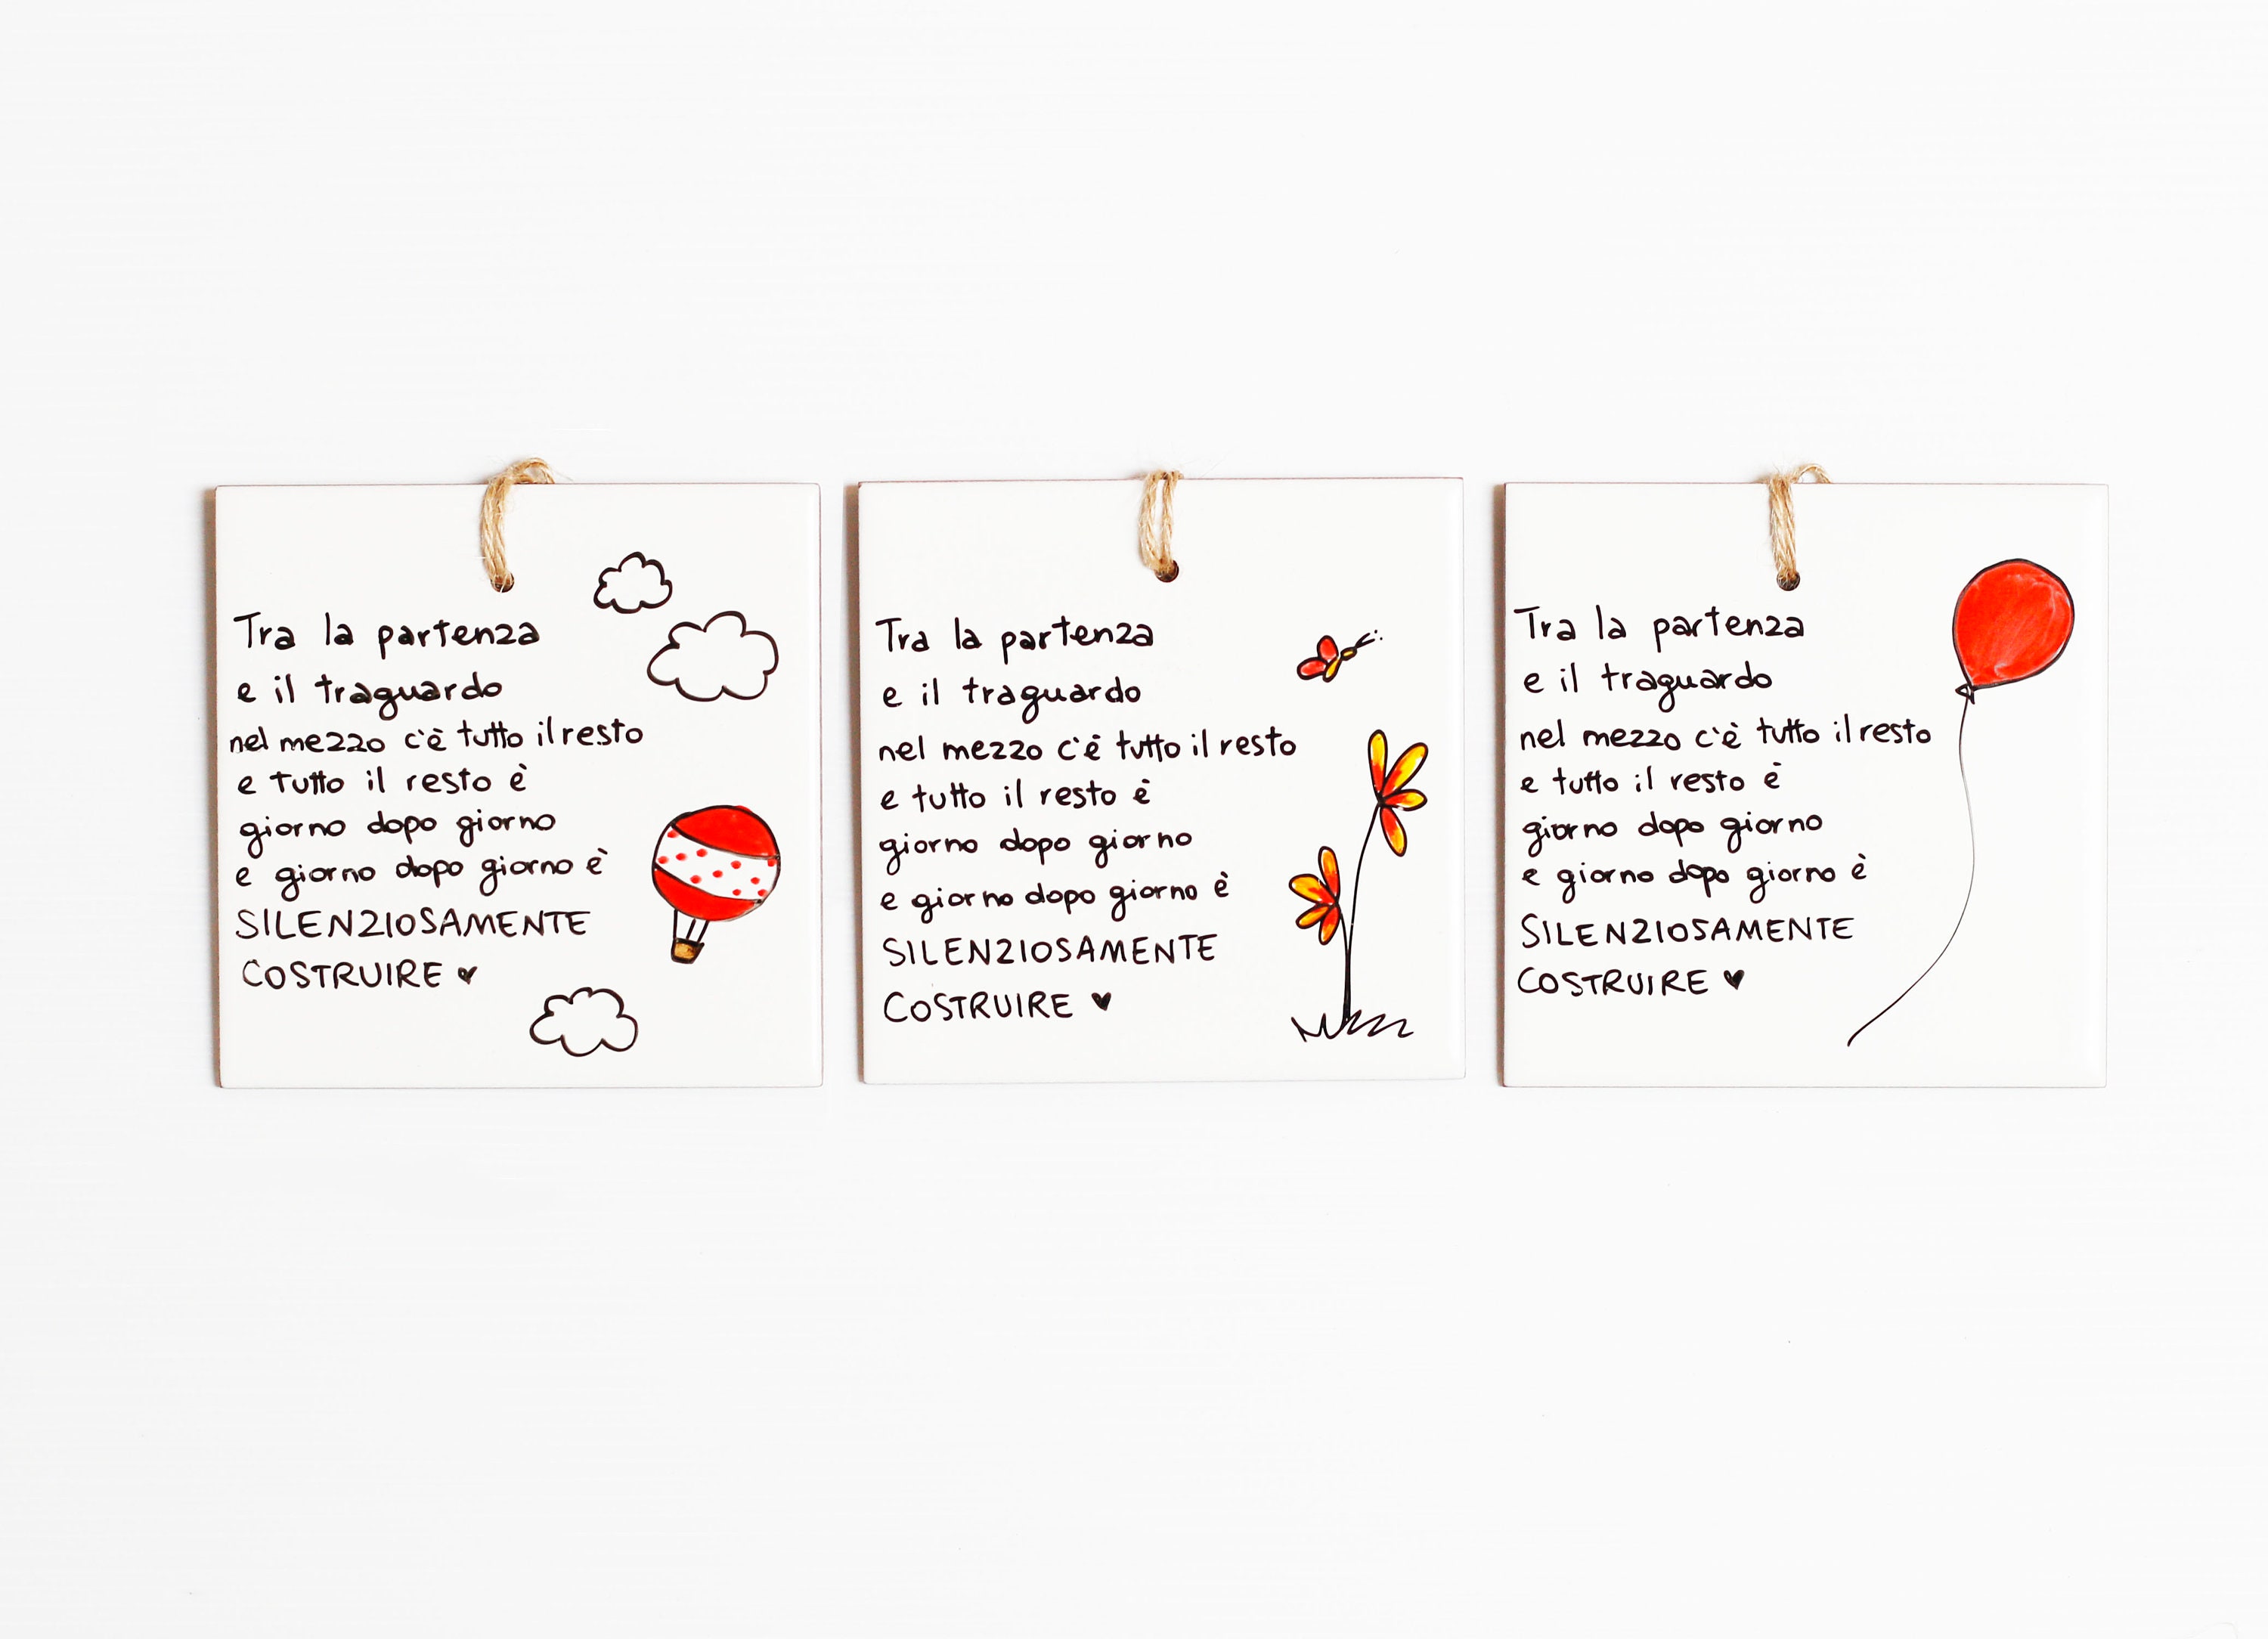 Tra la partenza
e il traguardo
nel mezzo c'è tutto il resto
e tutto il resto è
giorno dopo giorno
e giorno dopo giorno è
SILENZIOSAMENTE
COSTRUIRE ♥
Tra la partenza
e il traguardo
nel mezzo c'è tutto il resto
e tutto il resto è
giorno dopo giorno
e giorno dopo giorno è
SILENZIOSAMENTE
COSTRUIRE ♥
Tra la partenza
e il traguardo
nel mezzo c'è tutto il resto
e tutto il resto è
giorno dopo giorno
e giorno dopo giorno è
SILENZIOSAMENTE
COSTRUIRE ♥